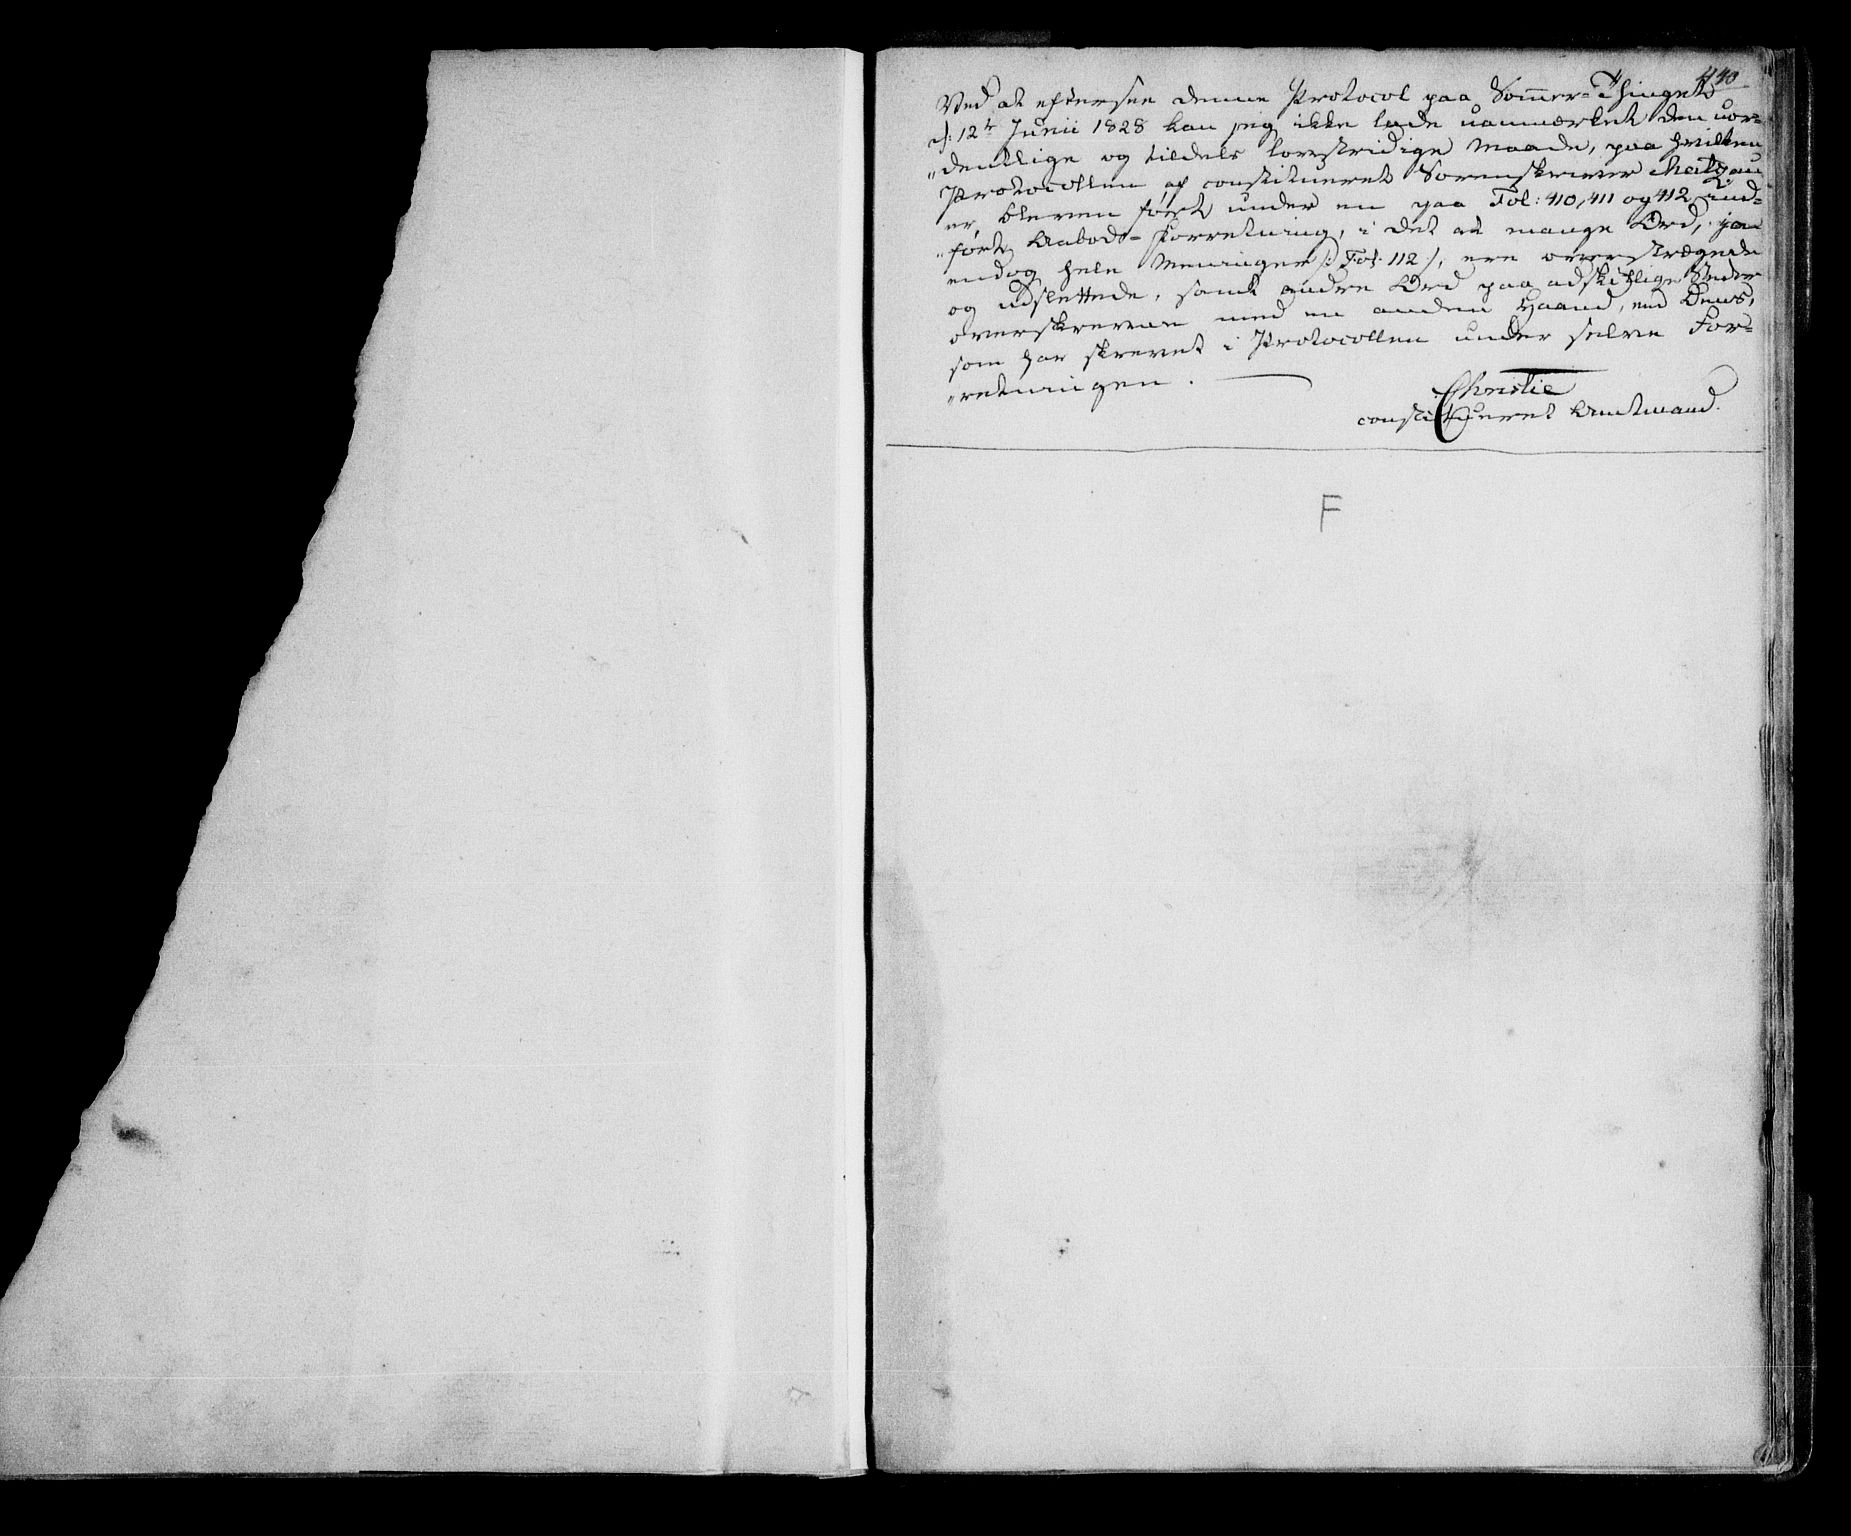 440
Ved at eftersee denne Protocol paa Sommer-Thinget
d: 12te Junii 1828 kan jeg ikke lade uanmærket den uor-
"dentlige og tildels lovstridige Maade, paa hvilken
Protocollen af constitueret Sorenskriver
er bleven ført under en paa Fol: 410, 411 og 412 ind-
"ført Aabods-Forretning, i det at mange Ord, jaa
endog hele Meninger /: Fol: 112 /, ere overstrægede
og udslettede, samt andre Ord paa adskillige Steder
overskrevne med en anden Haand, end Dens,
som har skrevet i Protocollen under selve For-
"retningen.
Christie
constitueret Amtmand.
F